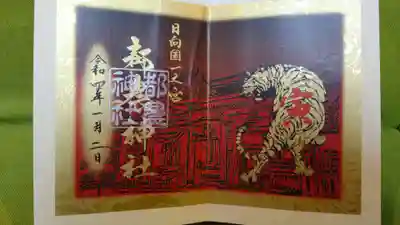 日向国一之宮
都農神社
都農神社
令和四年一月二日